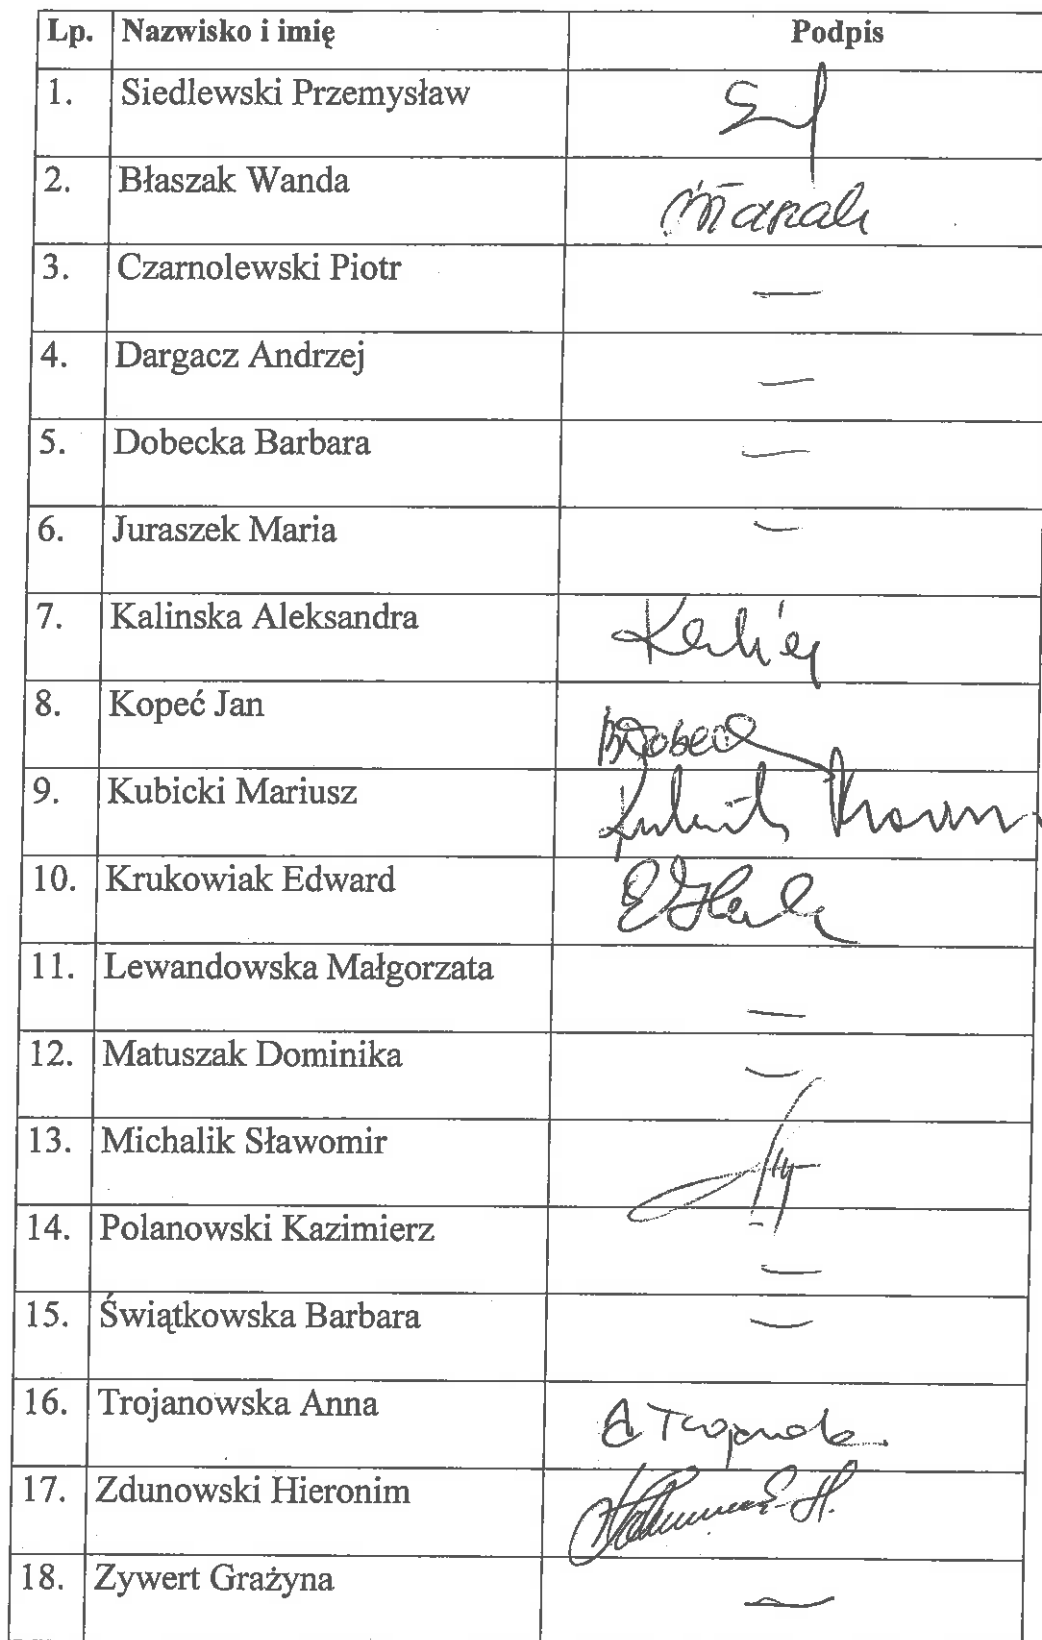 Lp. Nazwisko i imię Podpis
1. Siedlewski Przemysław
2. Błaszak Wanda
3. Czarnolewski Piotr —
4. Dargacz Andrzej —
5. Dobecka Barbara —
6. Juraszek Maria —
7. Kalinska Aleksandra
8. Kopeć Jan
9. Kubicki Mariusz
10. Krukowiak Edward
11. Lewandowska Małgorzata —
12. Matuszak Dominika —
13. Michalik Sławomir
14. Polanowski Kazimierz —
15. Świątkowska Barbara —
16. Trojanowska Anna
17. Zdunowski Hieronim
18. Zywert Grażyna —